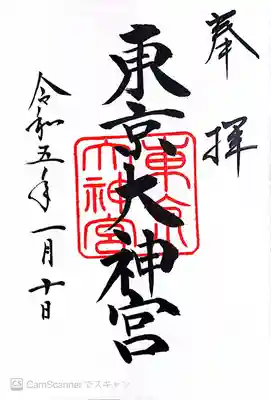 奉拝
東京大神宮
東京
大神宮
令和五年一月十日
CS CamScannerでスキャン